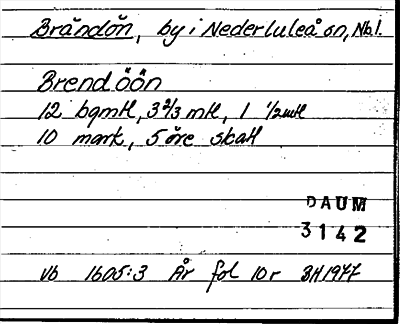 Brändön, by i Nederluleå sn, Nb.l.
Brendöön
12 bgmtl, 3 2/3 mtl, 1 1/2 mtl
10 mark, 5 öre skatt
DAUM
3142
Vb 1605:3 År fol 10r BH 1977